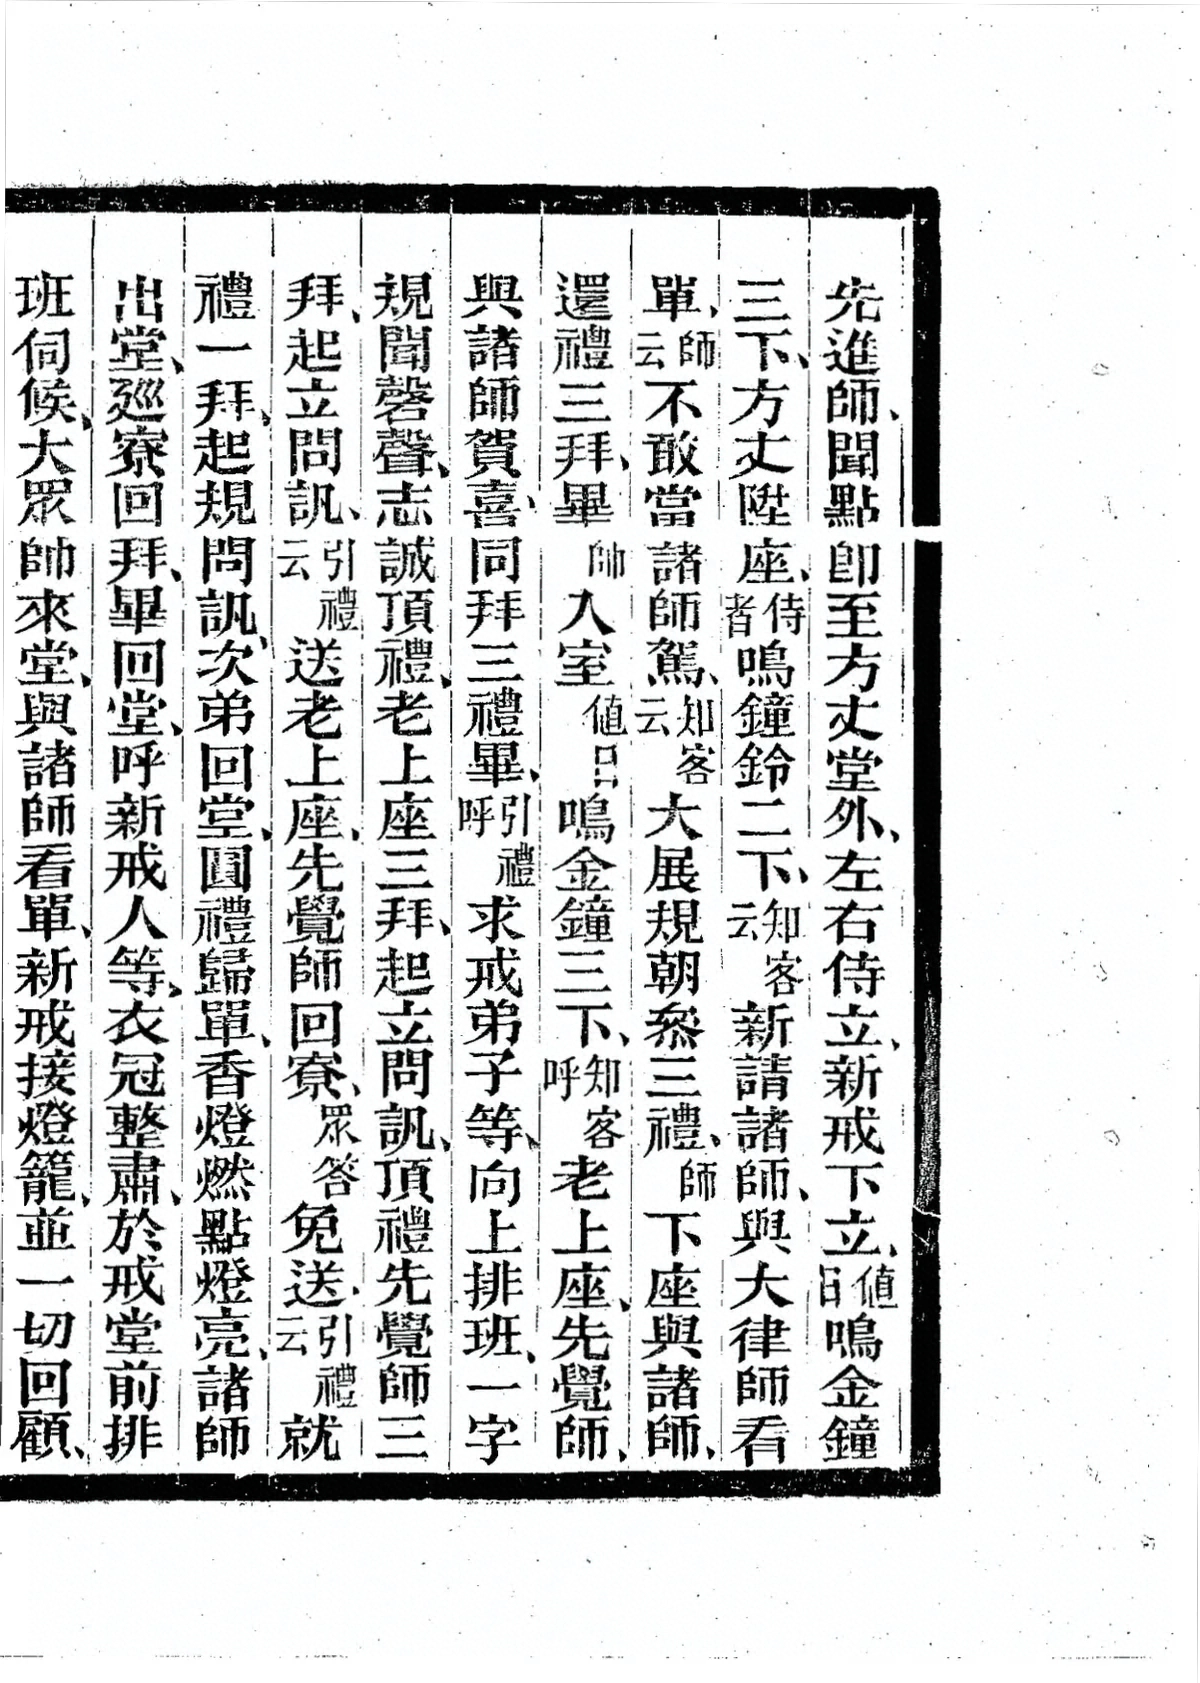 先進師、聞點卽至方丈堂外、左右侍立、新戒下立、値日鳴金鐘
三下、方丈陞座、侍者鳴鐘鈴二下、知客云新請諸師、與大律師看
單、師云不敢當諸師駕、知客云大展規朝叅三禮、師下座與諸師、
還禮三拜、畢師入室値日鳴金鐘三下、知客呼老上座、先覺師、
與諸師賀喜、同拜三禮畢、引禮呼求戒弟子等、向上排班、一字
規聞磬聲、志誠頂禮、老上座三拜、起立問訊、頂禮先覺師三
拜、起立問訊、引禮云送老上座、先覺師回寮、眾答免送、引禮云就
禮一拜、起規問訊、次弟回堂、圓禮歸單、香燈燃點燈亮、諸師
出堂、廵寮回拜、畢回堂、呼新戒人等、衣冠整肅、於戒堂前排
班伺候、大眾帥來堂、與諸師看單、新戒接燈籠、並一切回顧、